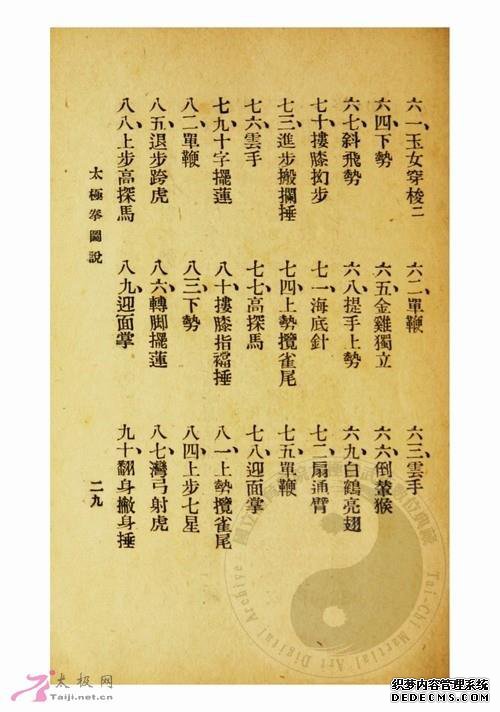 六一、玉女穿梭二　六二、單鞭　六三、雲手
六四、下勢　六五、金雞獨立　六六、倒輦猴
六七、斜飛勢　六八、提手上勢　六九、白鶴亮翅
七十、摟膝拗步　七一、海底針　七二、扇通臂
七三、進步搬攔捶　七四、上勢攬雀尾　七五、單鞭
七六、雲手　七七、高探馬　七八、迎面掌
七九、十字擺蓮　八十、摟膝指襠捶　八一、上勢攬雀尾
八二、單鞭　八三、下勢　八四、上步七星
八五、退步跨虎　八六、轉脚擺蓮　八七、灣弓射虎
八八、上步高探馬　八九、迎面掌　九十、翻身撇身捶
太極拳圖說　二九
Tai-Chi Martial Art Digital Archive
太极网
Taiji.net.cn
织梦内容管理系统
DEDECMS.COM